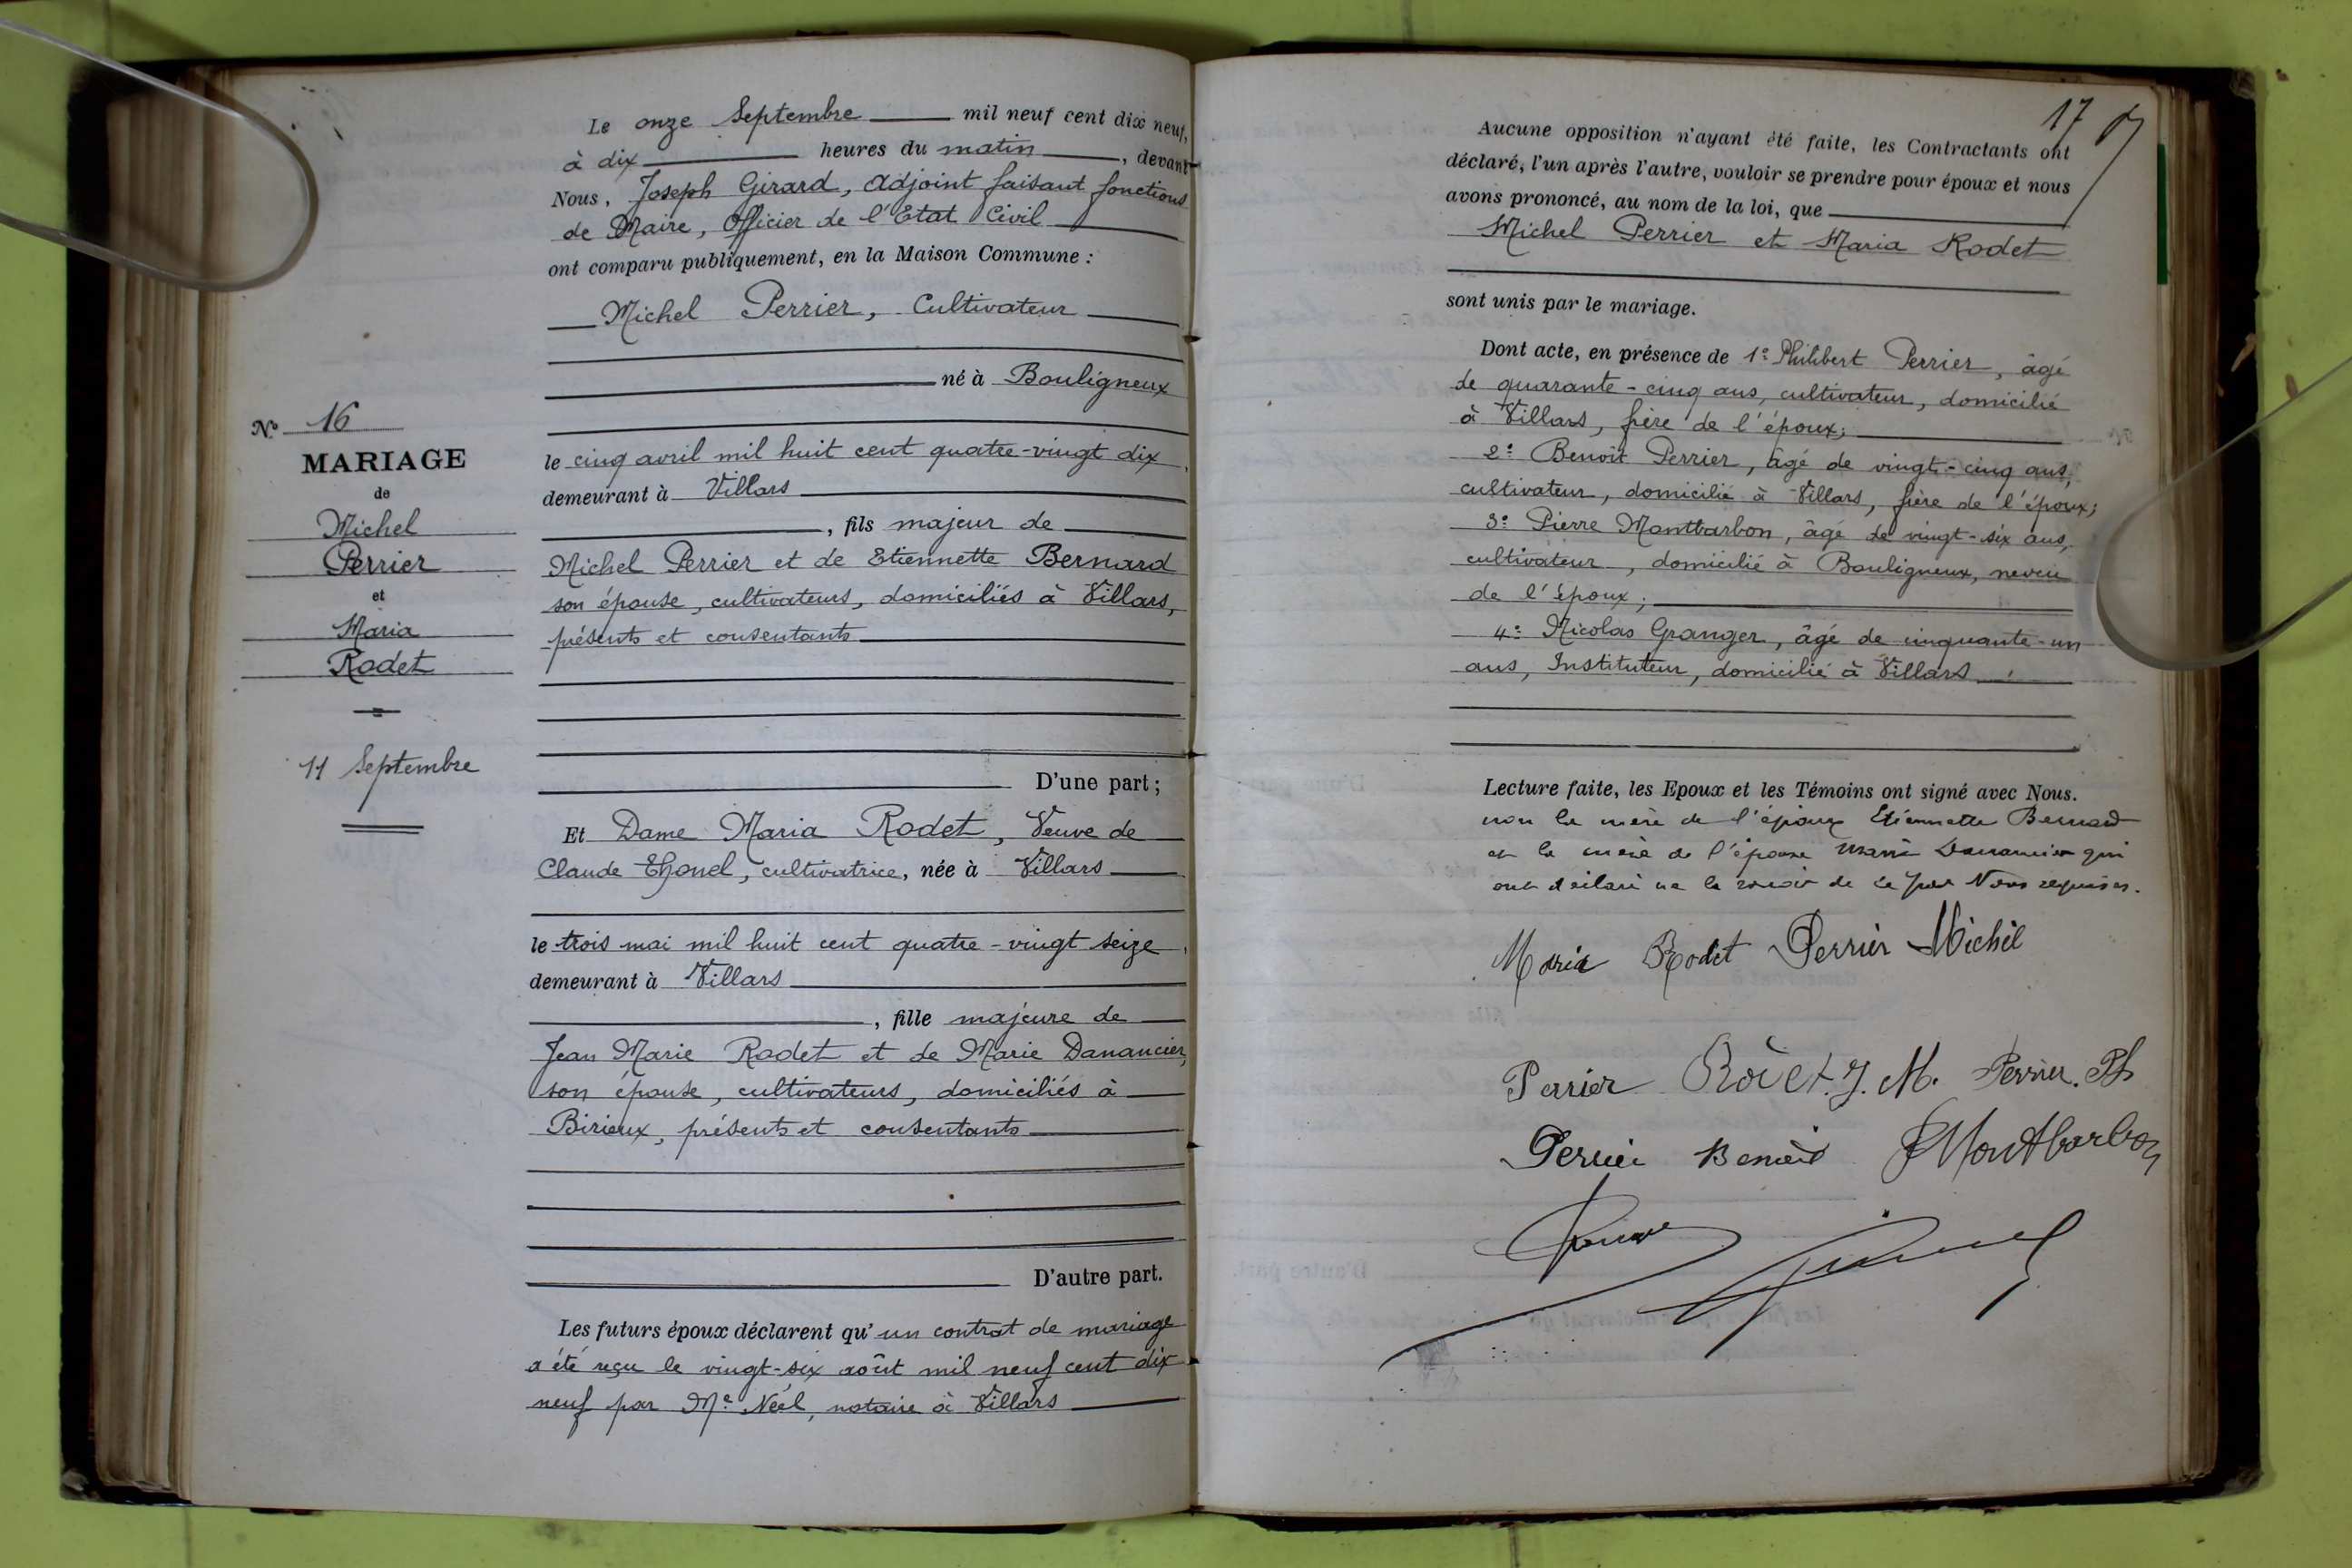 Le onze Septembre mil neuf cent dix neuf,
à dix heures du matin, devant
Nous, Joseph Girard, adjoint faisant fonctions
de Maire, Officier de l'Etat Civil
ont comparu publiquement, en la Maison Commune :
Michel Perrier, Cultivateur
né à Bouligneux
le cinq avril mil huit cent quatre-vingt dix,
demeurant à Villars
, fils majeur de
Michel Perrier et de Etiennette Bernard
son épouse, cultivateurs, domiciliés à Villars,
présents et consentants
D'une part ;
Et Dame Maria Rodet, Veuve de
Claude, cultivatrice, née à Villars
le trois mai mil huit cent quatre-vingt seize,
demeurant à Villars
, fille majeure de
Jean Marie Rodet et de Marie Danancier,
son épouse, cultivateurs, domiciliés à
Birieux, présents et consentants
D'autre part.
Les futurs époux déclarent qu'un contrat de mariage
a été reçu le vingt-six août mil neuf cent dix
neuf par Me Néel, notaire à Villars
No 16
MARIAGE
de
Michel
Perrier
et
Maria
Rodet
11 Septembre
17
Aucune opposition n'ayant été faite, les Contractants ont
déclaré, l'un après l'autre, vouloir se prendre pour époux et nous
avons prononcé, au nom de la loi, que
Michel Perrier et Maria Rodet
sont unis par le mariage.
Dont acte, en présence de 1º Philibert Perrier, âgé
de quarante-cinq ans, cultivateur, domicilié
à Villars, frère de l'époux;
2º Benoît Perrier, âgé de vingt-cinq ans,
cultivateur, domicilié à Villars, frère de l'époux;
3º Pierre Montbarbon, âgé de vingt-six ans,
cultivateur, domicilié à Bouligneux, neveu
de l'époux;
4º Nicolas Granger, âgé de cinquante-un
ans, Instituteur, domicilié à Villars
Lecture faite, les Epoux et les Témoins ont signé avec Nous.
non la mère de l'époux Etiennette Bernard
et la mère de l'épouse Marie Danancier qui
ont déclaré ne le savoir de ce par Nous requises.
Maria Rodet Perrier Michel
Perrier Rodet J. M. Perrier. Ph
Perrier Benoit P Montbarbon